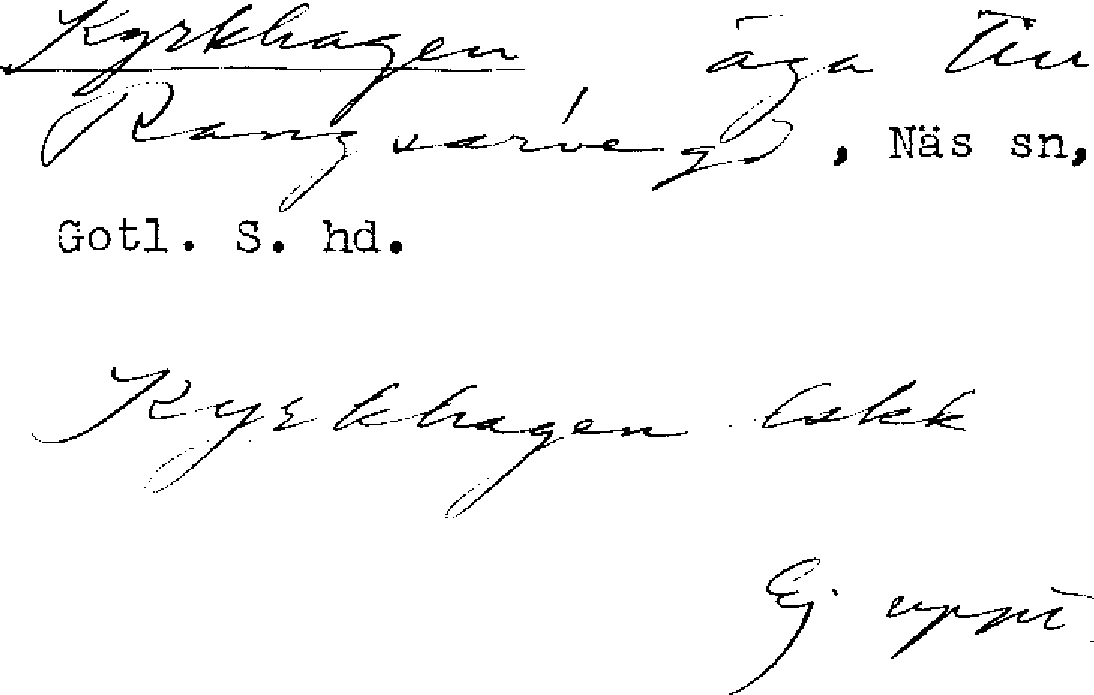 Kyrkhagen äga till
Rangsarve gd, Näs sn,
Gotl. S. hd.
Kyrkhagen lskk
Ej uppt.